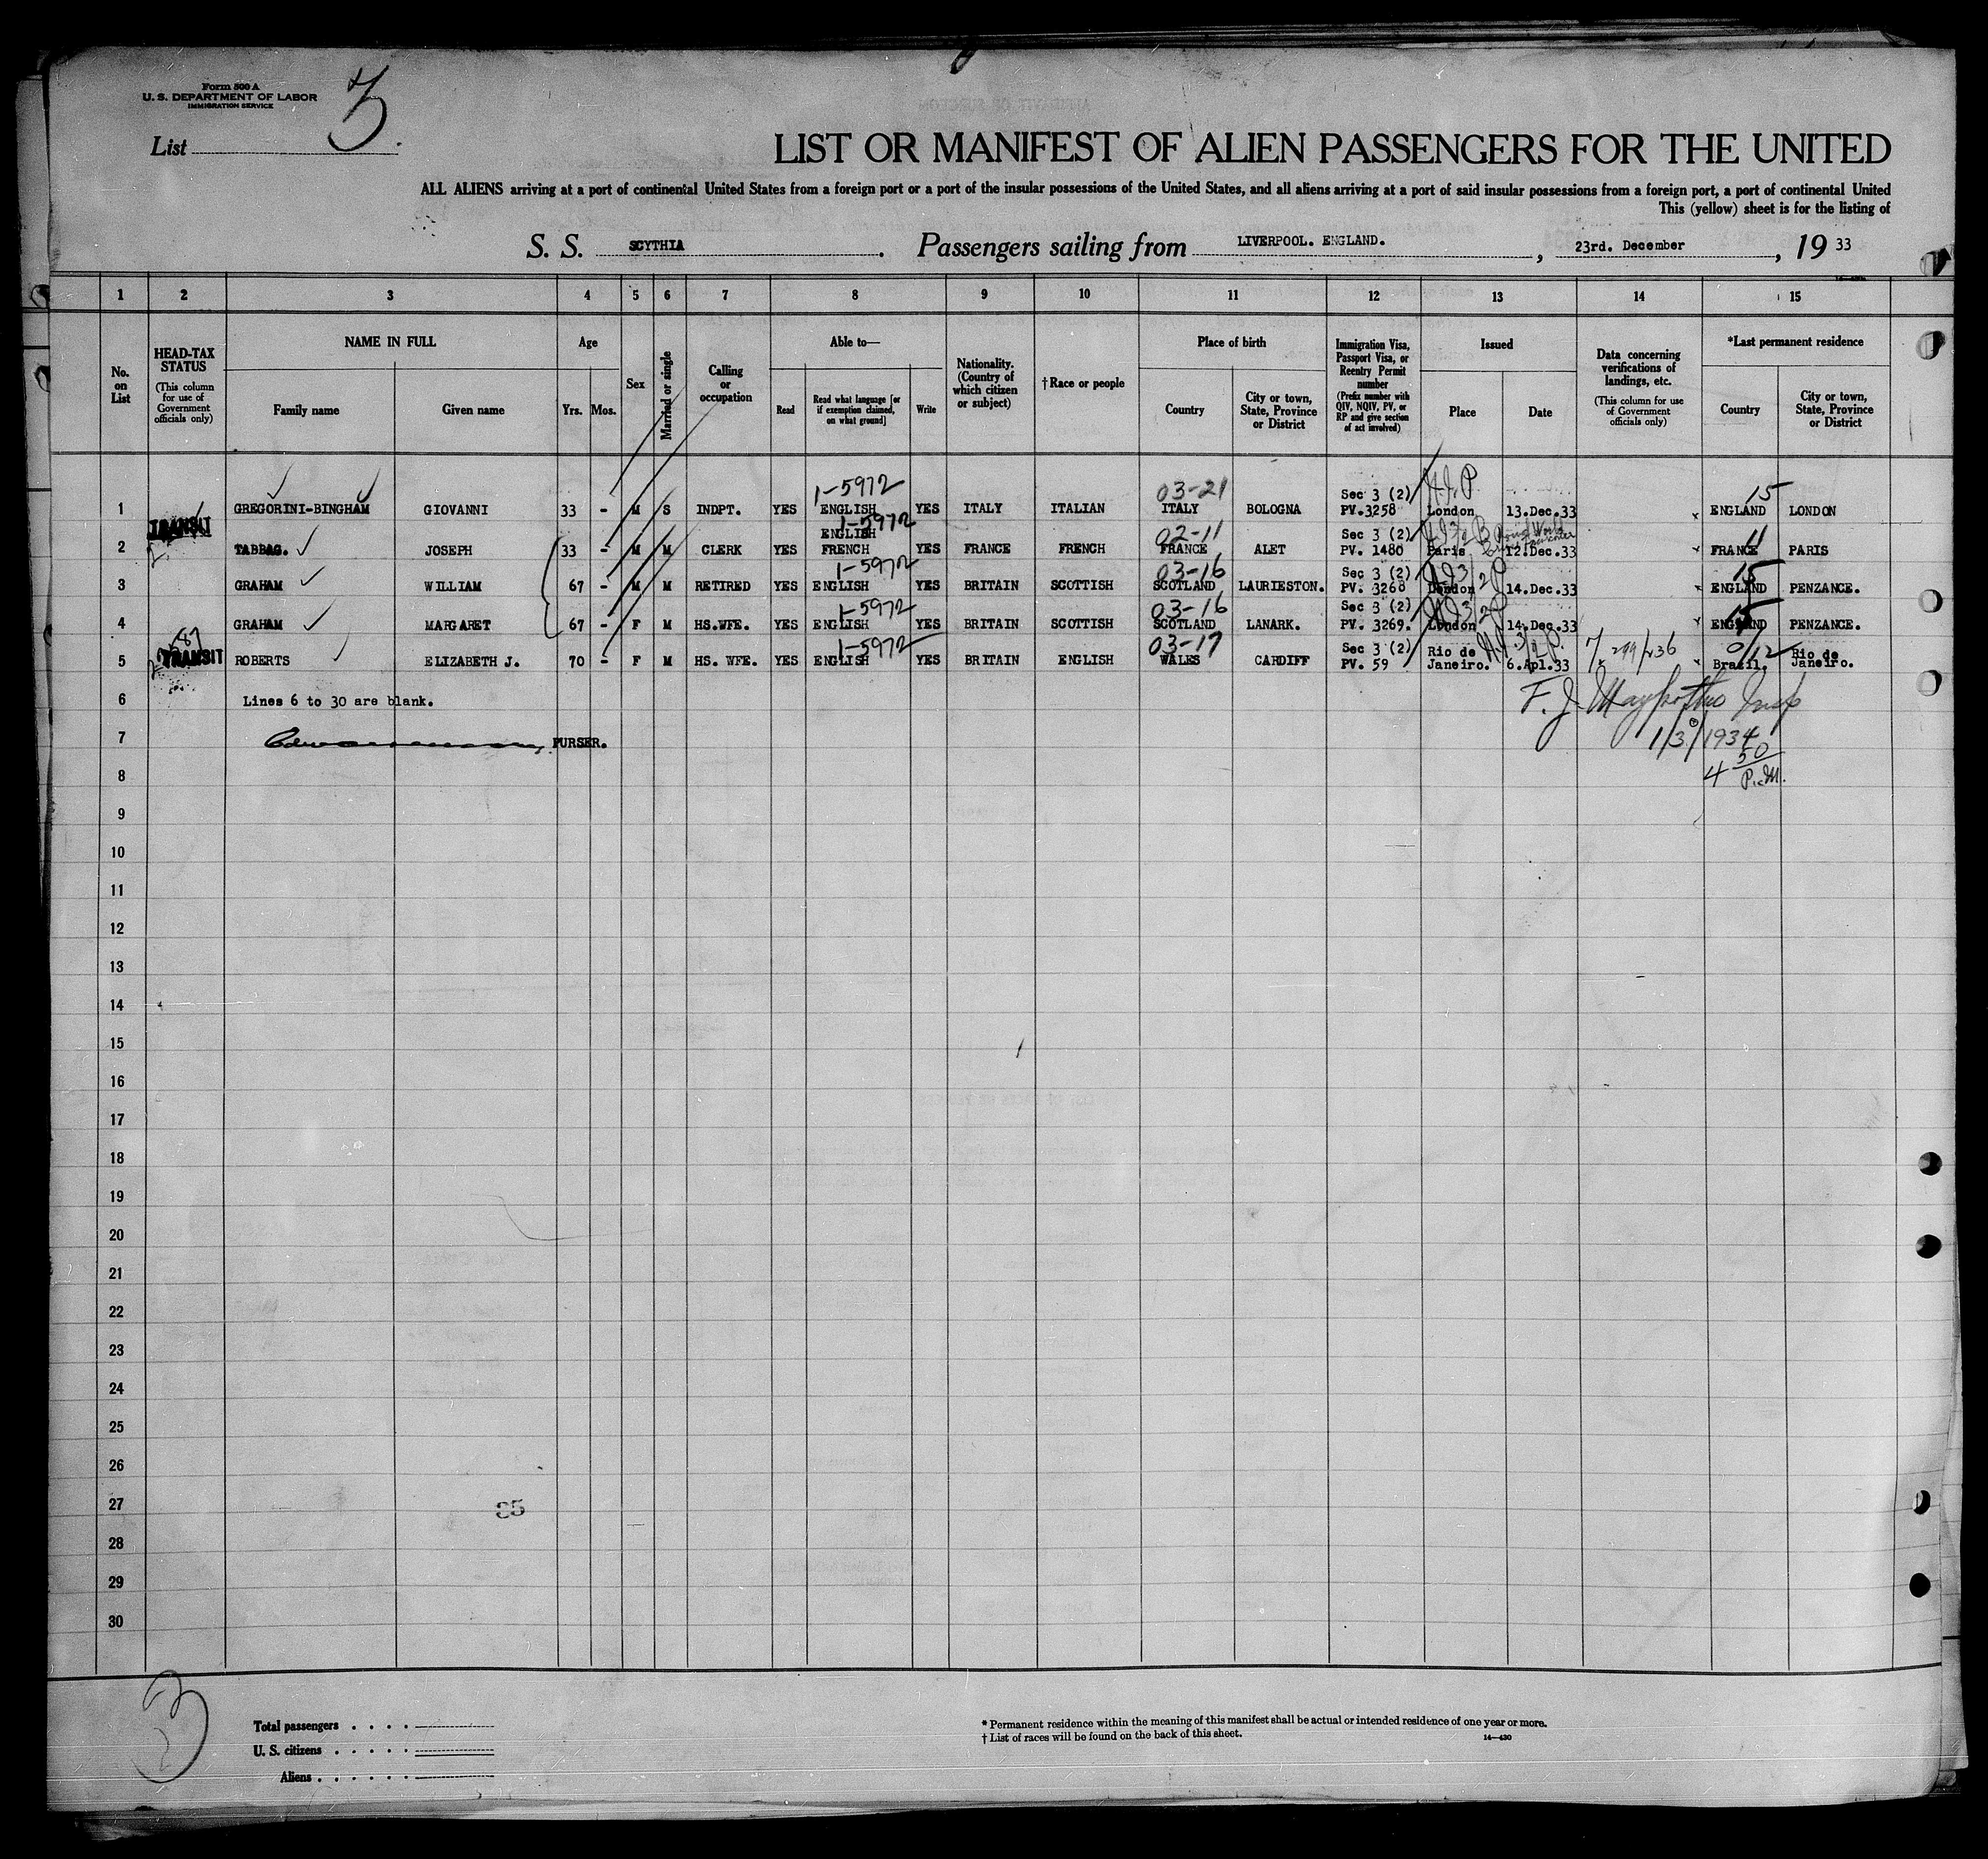 Form 500 A
U. S. DEPARTMENT OF LABOR
IMMIGRATION SERVICE
List 3.
LIST OR MANIFEST OF ALIEN PASSENGERS FOR THE UNITED
ALL ALIENS arriving at a port of continental United States from a foreign port or a port of the insular possessions of the United States, and all aliens arriving at a port of said insular possessions from a foreign port, a port of continental United
This (yellow) sheet is for the listing of
S. S. SCYTHIA. Passengers sailing from LIVERPOOL. ENGLAND., 23rd. December, 19 33
1 2 3 4 5 6 7 8 9 10 11 12 13 14 15
No. on List
HEAD-TAX STATUS (This column for use of Government officials only)
NAME IN FULL Family name Given name
Age Yrs. Mos.
Sex
Married or single
Calling or occupation
Able to— Read Read what language [or if exemption claimed, on what ground] Write
Nationality. (Country of which citizen or subject)
† Race or people
Place of birth Country City or town, State, Province or District
Immigration Visa, Passport Visa, or Reentry Permit number (Prefix number with QIV, NQIV, PV, or RP and give section of act involved)
Issued Place Date
Data concerning verifications of landings, etc. (This column for use of Government officials only)
*Last permanent residence Country City or town, State, Province or District
1-5972 03-21 Sec 3 (2) 15
1 GREGORINI-BINGHAM GIOVANNI 33 - M S INDPT. YES ENGLISH YES ITALY ITALIAN ITALY BOLOGNA PV.3258 London 13.Dec.33 ENGLAND LONDON
TRANSIT 1-5972 ENGLISH 02-11 Sec 3 (2) 11
2 TABBAG. JOSEPH 33 - M M CLERK YES FRENCH YES FRANCE FRENCH FRANCE ALET PV. 1480 Paris 12.Dec.33 FRANCE PARIS
1-5972 03-16 Sec 3 (2) 15
3 GRAHAM WILLIAM 67 - M M RETIRED YES ENGLISH YES BRITAIN SCOTTISH SCOTLAND LAURIESTON. PV. 3268 London 14.Dec.33 ENGLAND PENZANCE.
1-5972 03-16 Sec 3 (2) 15
4 GRAHAM MARGARET 67 - F M HS.WFE. YES ENGLISH YES BRITAIN SCOTTISH SCOTLAND LANARK. PV. 3269. London 14.Dec.33 ENGLAND PENZANCE.
1-5972 03-17 Sec 3 (2) 7-299/236 0/12
5 TRANSIT ROBERTS ELIZABETH J. 70 - F M HS. WFE. YES ENGLISH YES BRITAIN ENGLISH WALES CARDIFF PV. 59 Rio de Janeiro. 6.Apl.33 Brazil. Rio de Janeiro.
6 Lines 6 to 30 are blank. F. J. Insp
7 PURSER. 1/3/1934
8 4 50 P.M.
9
10
11
12
13
14
15
16
17
18
19
20
21
22
23
24
25
26
27
28
29
30
35
3
Total passengers
U. S. citizens
Aliens
* Permanent residence within the meaning of this manifest shall be actual or intended residence of one year or more.
† List of races will be found on the back of this sheet. 14—430